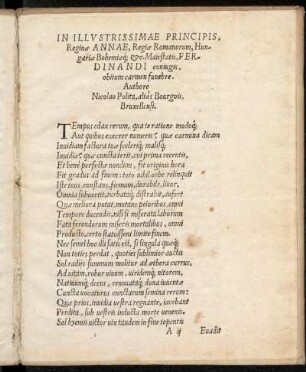 IN ILLVSTRISSIMAE PRINCIPIS,
Reginæ ANNAE, Regiæ Romanorum, Hun-
gariæ Bohemięq; &c. Maiestatis, FER-
DINANDI coniugis,
obitum carmen funebre.
Authore
Nicolao Polita, aliàs Bourgois,
Bruxellensi.
TEmpus edax rerum, qua te ratione modoq́;
Aut quibus exoccer numeris? quæ carmina dicam
Inuidiam factura tuæ sceleriq́; malisq́;
Inuidiæ? quæ cuncta terit, cui prima recentis,
Et bene perfectæ nondum, fit originis hora
Fit gradus ad finem: toto nihil orbe relinquit
Iste tuus, constans, firmum, durabile, liuor.
Omnia subuertit, turbatq́; distrahit, aufert
Quæ meliora putat, mutans peioribus, omni
Tempore ducendis, nisi si miserata laborum
Fata ferendorum miseris mortalibus, omni
Producto, certo statuissent limite finem.
Nec semel hoc illi satis est, si singula quæq́;
Non toties perdat, quoties sublimior auctu
Sol radijs summum molitur ad æthera currus,
Ad vitam, robur viuum, viridemq́; vitorem,
Natiuumq́; decus, renouatáq́; dona iuuentæ
Cuncta vocaturus cunctarum semina rerum:
Quæ prius, inuidia vestra regnante, iacebant
Perdita, sub vestem inducta morte veneni.
Sol hyemis victor vix tandem in fine repentis
A ij Euadit